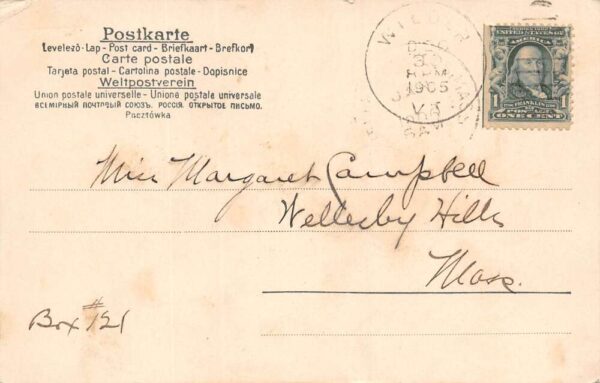 Postkarte
Levelező-Lap - Post card - Briefkaart - Brefkort
Carte postale
Tarjeta postal - Cartolina postale - Dopisnice
Weltpostverein
Union postale universelle - Unione postale universale
ВСЕМІРНЫЙ ПОЧТОВЫЙ СОЮЗЪ. РОССІЯ. ОТКРЫТОЕ ПИСЬМО.
Pocztówka
WILDER
DEC
30
1905
VT.
UNITED STATES OF AMERICA
FRANKLIN
1 1
ONE CENT
Miss Margaret Campbell
Wellesley Hills
Mass.
Box #121